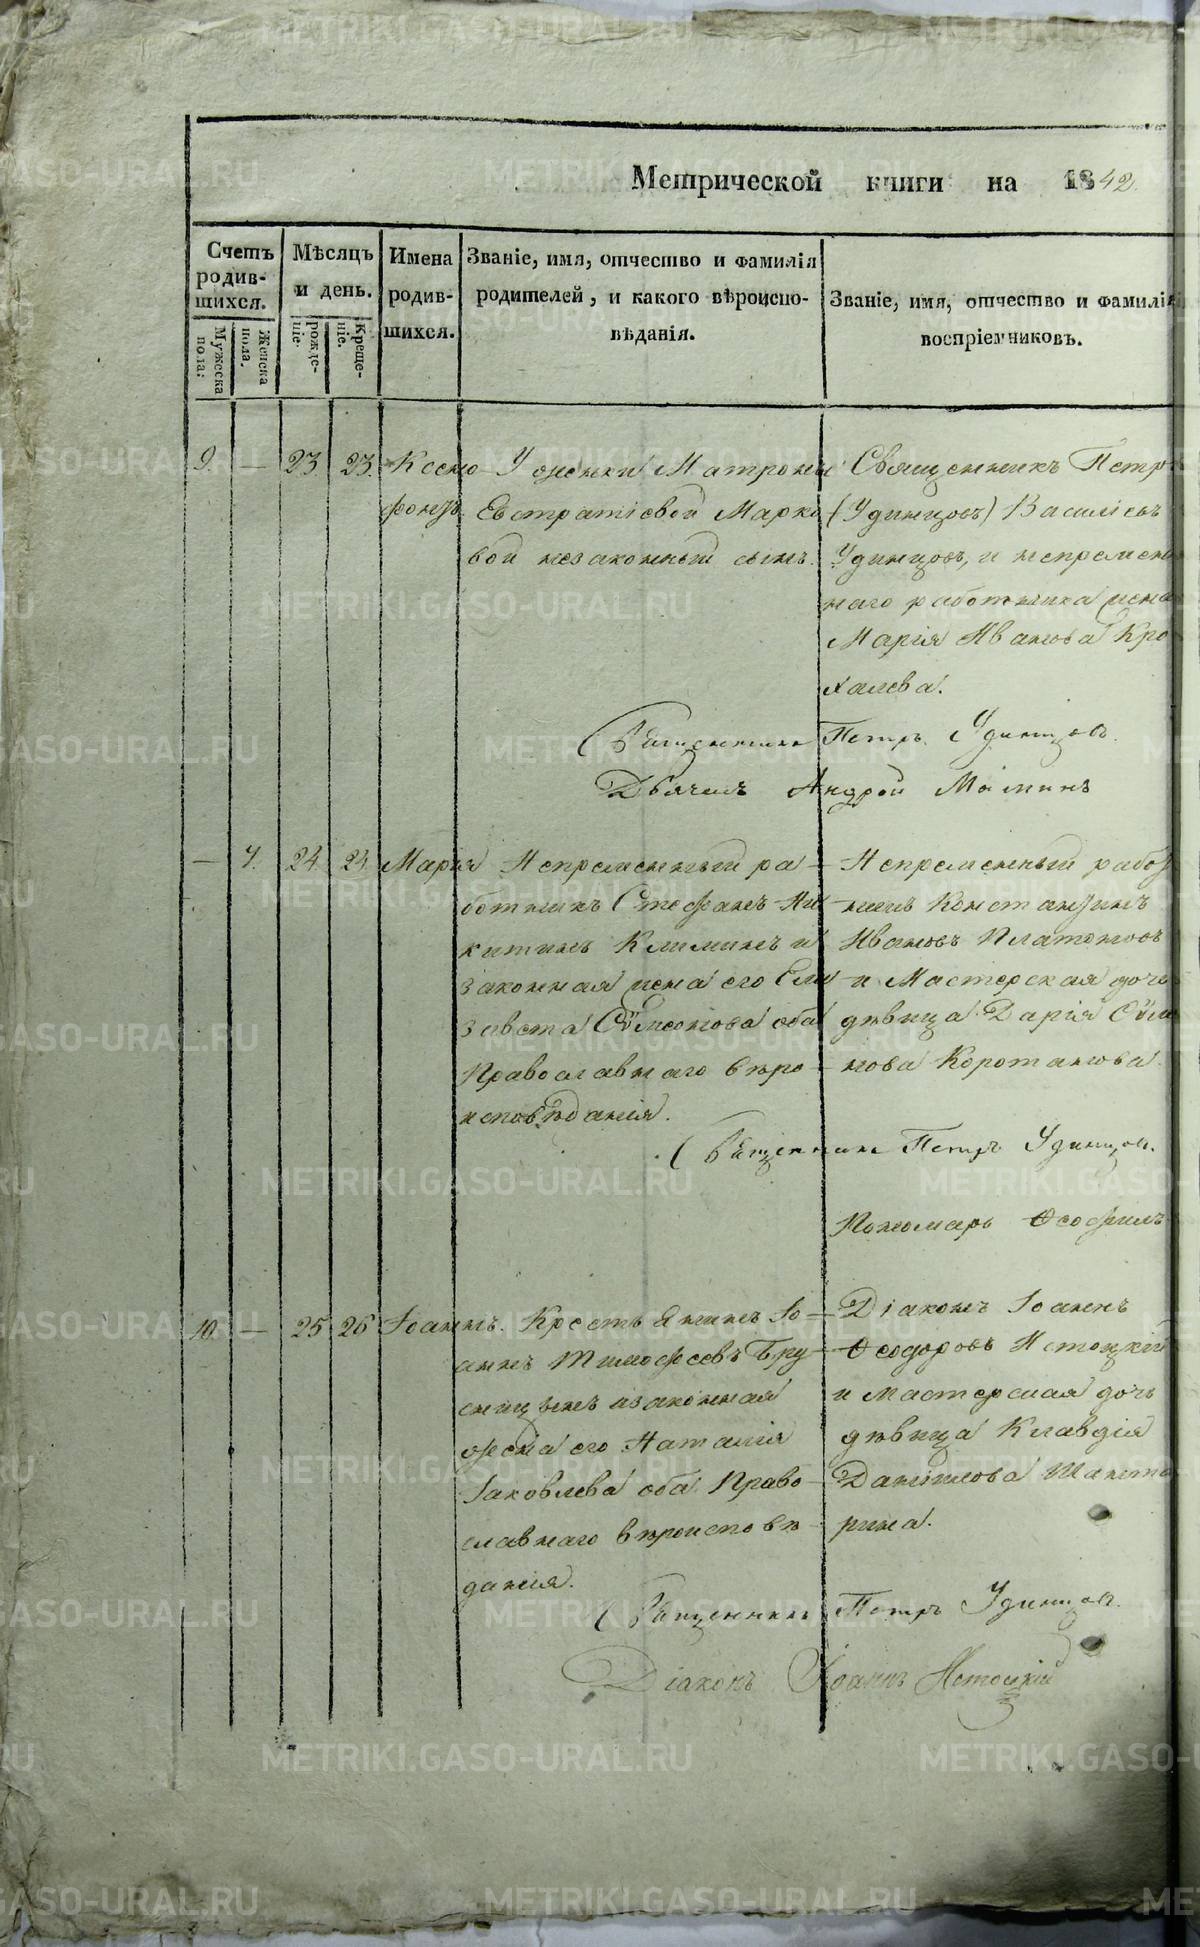 Метрической книги на 1842.
Счетъ родив-
шихся.
Мужеска пола.
Женска пола.
Мѣсяцъ
и день.
рожде-
ніе.
креще-
ніе.
Имена
родив-
шихся.
Званіе, имя, отчество и фамилія
родителей, и какого вѣроиспо-
вѣданія.
Званіе, имя, отчество и фамилія
воспріемниковъ.
9. — 23 23. Ксено-
фонтъ.
У женки Матроны
Евстратіевой Марко-
вой незаконный сынъ.
Священникъ Петръ
(Удинцовъ) Василіевъ
Удинцовъ, и непремен-
наго работника жена
Марія Иванова Кро-
халева.
Священникъ Петръ Удинцовъ.
Дьячекъ Андрей Маминъ
— 7. 24 24. Марія
Непременный ра-
ботникъ Стефанъ Ни-
китинъ Климинъ и
законная жена его Ели-
завета Сѷмеонова оба
Православнаго веро-
исповѣданія.
Непременный работ-
никъ Константинъ
Ивановъ Платоновъ
и Мастерская дочь
дѣвица Дарія Сѷмо-
нова Коротанова.
Священникъ Петръ Удинцов.
Пономарь Ѳеофилъ
10. — 25 26 Іоаннъ.
Крестьянинъ Іо-
аннъ Тимофеевъ Бру-
сницынъ и законная
жена его Наталія
Іаковлева оба Право-
славнаго вѣроисповѣ-
данія.
Діаконъ Іоаннъ
Ѳеодоровъ Истоцкій
и мастерская дочь
дѣвица Клавдія
Даніилова Шанта-
рина.
Священникъ Петръ Удинцов.
Діаконъ Іоаннъ Истоцкій
METRIKI.GASO-URAL.RU